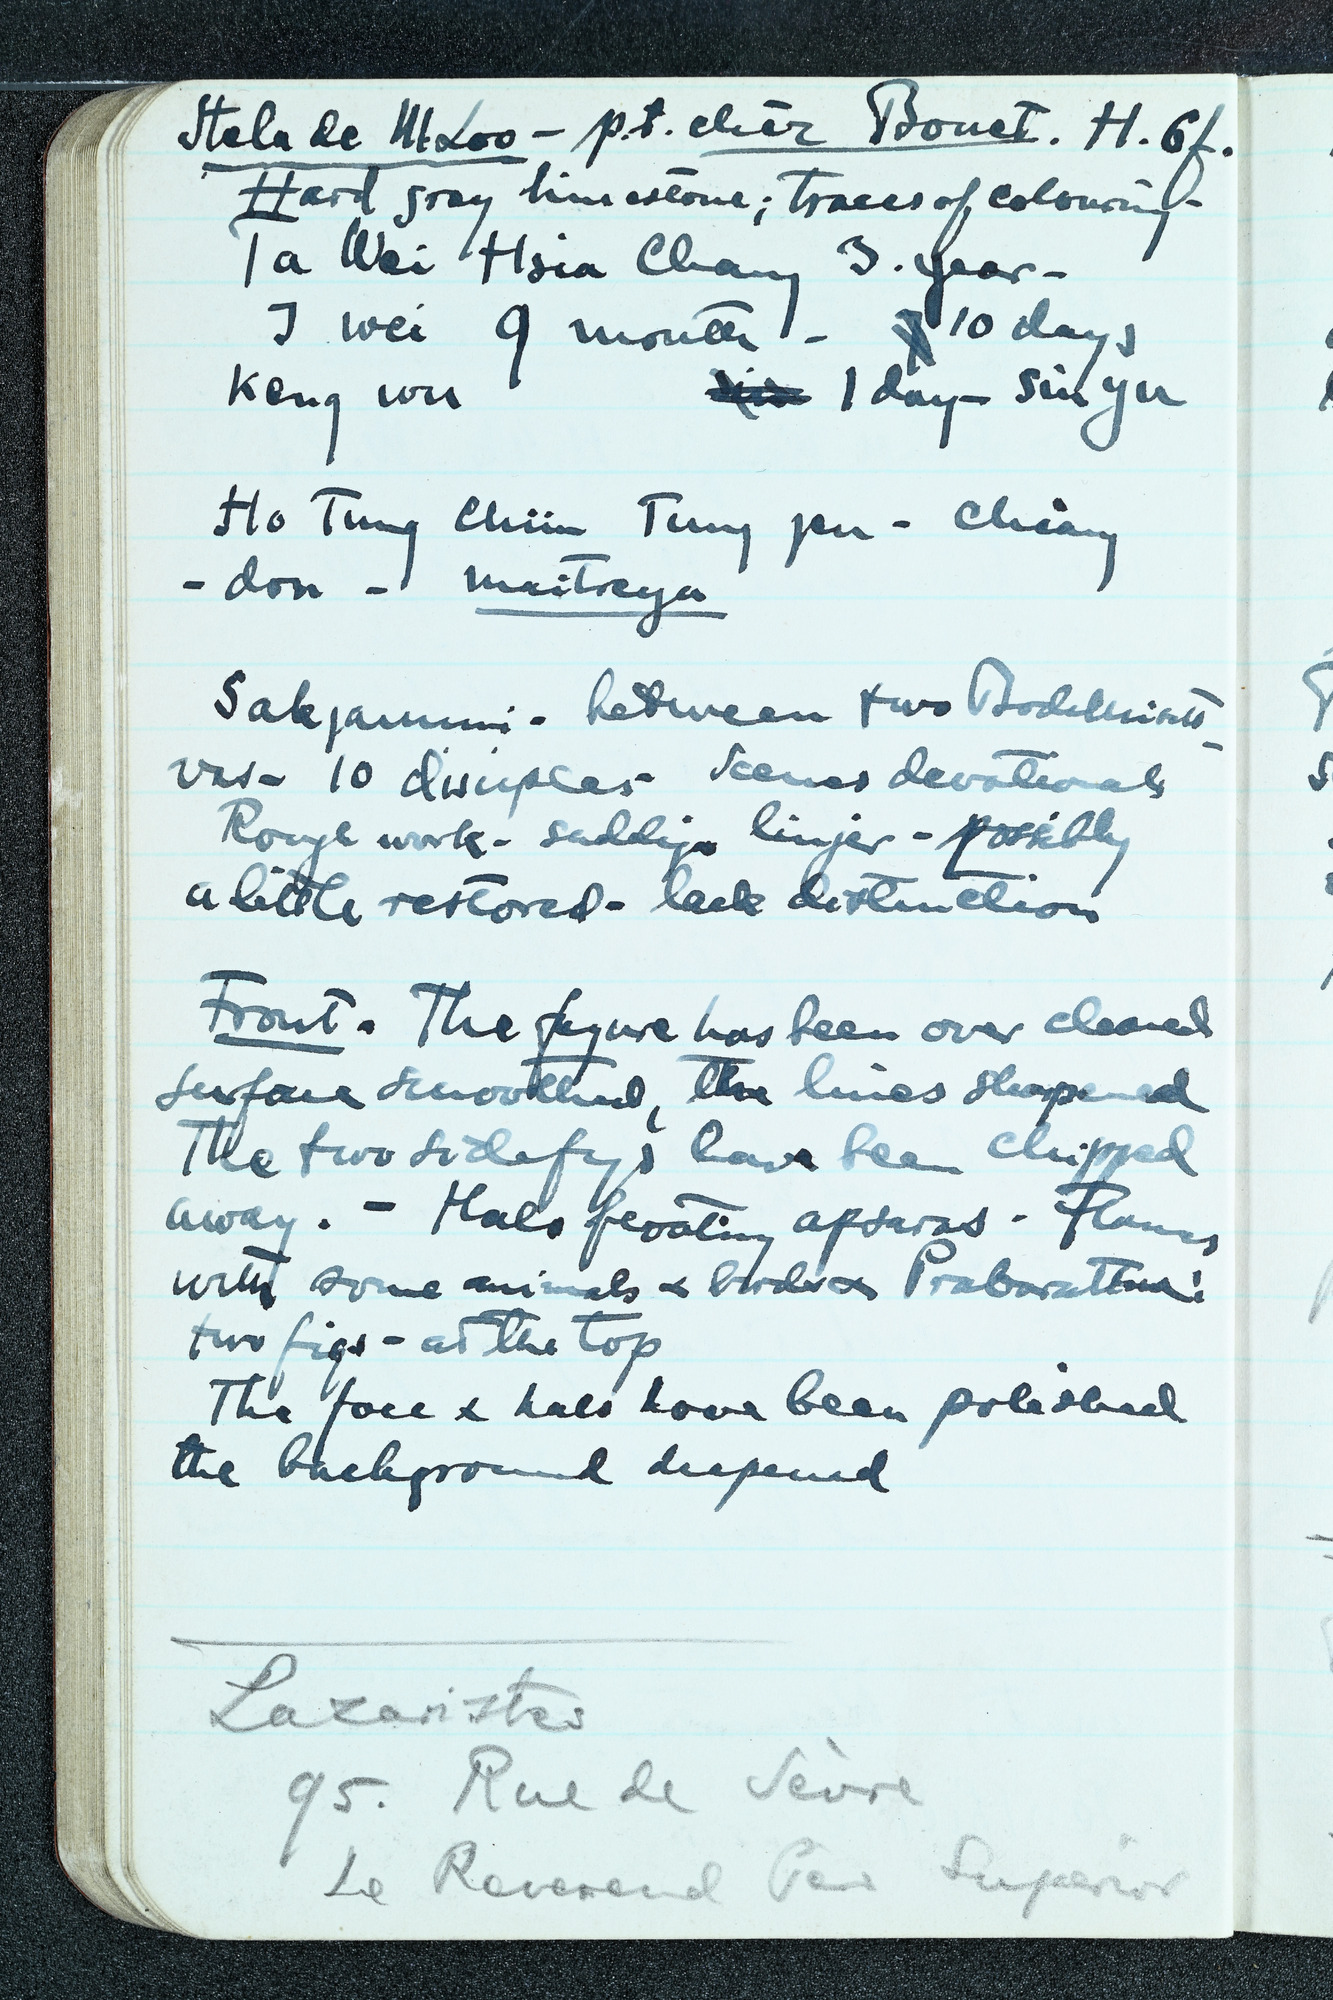 Stela de M Loo – p.t. chez Bouet. H. 6f.
Hard gray limestone; traces of colouring –
Ta Wei Hsia Chang 3. year –
I wei 9 month – 10 days
Keng wu 1 day – Sin yu
Ho Tung Chün Tung pu – Chiang
– don – Maitreya
Sakjamuni – between two Bodhisatt-
vas – 10 disciples – Scenes devotionals
Rough work – saddiga linjer – possibly
a little restored – lack distinction
Front. The figure has been over cleaned
surface smoothed, the lines sharpened
The two side figs have been chipped
away. – Halo floating apsaras. Flames
with some animals & birds &
two figs – at the top
The face & halo have been polished
the background deepened
Lazaristes
95. Rue de Sèvre
Le Reverend Père Superior